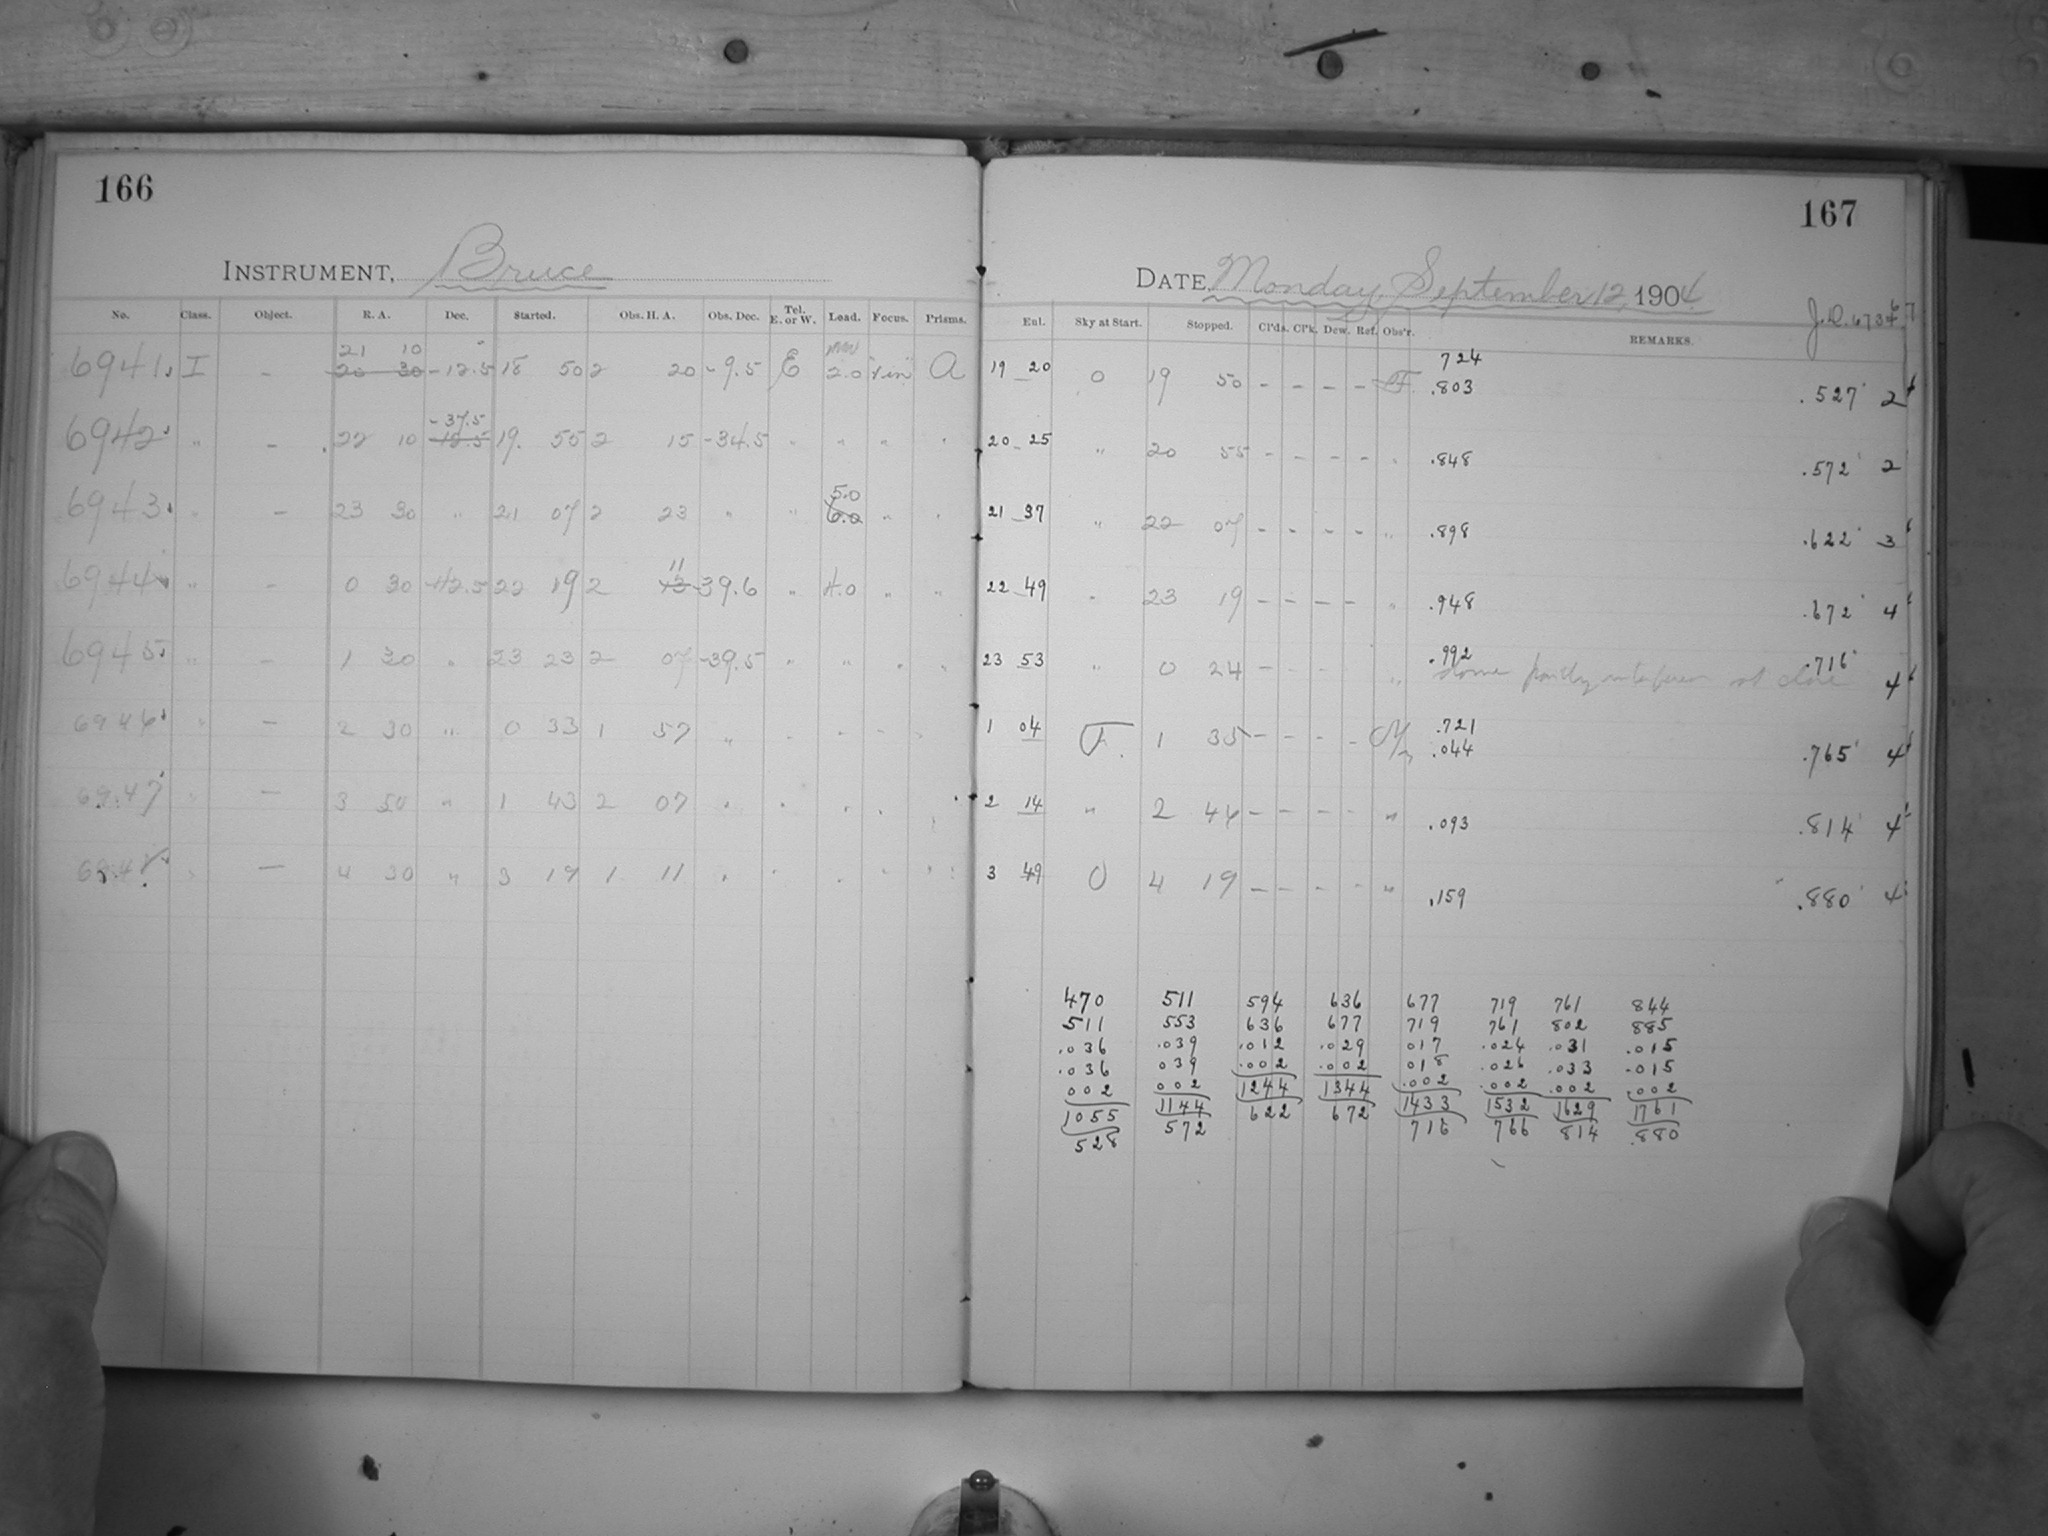 166
INSTRUMENT, Bruce
No. Class. Object. R. A. Dec. Started. Obs. H. A. Obs. Dec. Tel. E. or W. Load. Focus. Prisms.
21 10
6941 I - 20 30 -12.5 18 50 2 20 -9.5 E 2.0 A
-37.5
6942 " - 22 10 -12.5 19. 55 2 15 -34.5 " " " "
5.0
6943 " - 23 30 " 21 07 2 23 " " 6.0 " "
11
6944 " - 0 30 -42.5 22 19 2 13 -39.6 " 4.0 " "
6945 " - 1 30 " 23 23 2 07 -39.5 " " " "
6946 " - 2 30 " 0 33 1 57 " " " " "
6947 " - 3 50 " 1 43 2 07 " " " " "
6948 " - 4 30 " 3 19 1 11 " " " " "
167
DATE, Monday, September 12, 1904
J.D. 6736
Enl. Sky at Start. Stopped. Cl'ds. Cl'k. Dew. Ref. Obs'r. REMARKS.
724
19 20 0 19 50 - - - - F. .803 .527 2
20 25 " 20 55 - - - - " .848 .572 2
21 37 " 22 07 - - - - " .898 .622 3
22 49 " 23 19 - - - - " .948 .672 4
23 53 " 0 24 - - - " .992 .716 4
Dome partly at close
1 04 F. 1 35 - - - - .721 .044 .765 4
2 14 " 2 44 - - - - " .093 .814 4
3 49 0 4 19 - - - - " .159 .880 4
470 511 594 636 677 719 761 844
511 553 636 677 719 761 802 885
.036 .039 .012 .029 017 .024 .031 .015
.036 039 .002 .002 018 .026 .033 .015
002 002 1244 1344 .002 .002 .002 .002
1055 1144 622 672 1433 1532 1629 1761
528 572 716 766 814 .880